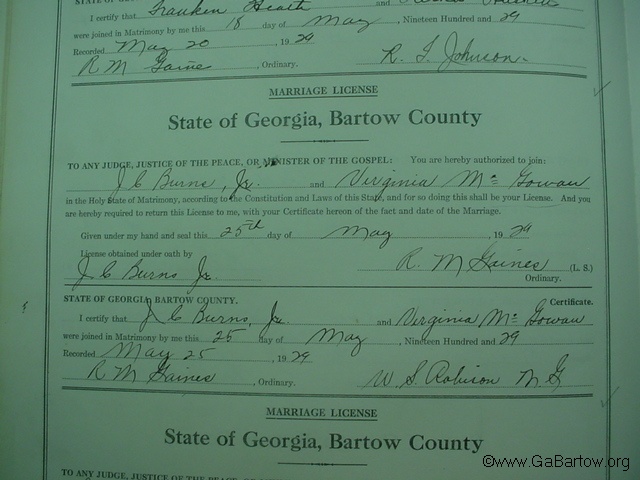 I certify that Frauken Heath
were joined in Matrimony by me this 18 day of May, Nineteen Hundred and 29
Recorded May 20, 1929
R M Gaines, Ordinary. R. T. Johnson.
MARRIAGE LICENSE
State of Georgia, Bartow County
TO ANY JUDGE, JUSTICE OF THE PEACE, OR MINISTER OF THE GOSPEL: You are hereby authorized to join:
J C Burns, Jr. and Virginia Mc Gowan
in the Holy State of Matrimony, according to the Constitution and Laws of this State, and for so doing this shall be your License. And you
are hereby required to return this License to me, with your Certificate hereon of the fact and date of the Marriage.
Given under my hand and seal this 25th day of May, 1929
License obtained under oath by
J C Burns Jr. R. M Gaines (L. S.)
Ordinary.
STATE OF GEORGIA, BARTOW COUNTY. Certificate.
I certify that J C Burns, Jr. and Virginia Mc Gowan
were joined in Matrimony by me this 25 day of May, Nineteen Hundred and 29
Recorded May 25, 1929
R M Gaines, Ordinary. W. S. Robison M G
MARRIAGE LICENSE
State of Georgia, Bartow County
TO ANY JUDGE, JUSTICE OF THE PEACE, OR MINISTER OF THE
©www.GaBartow.org